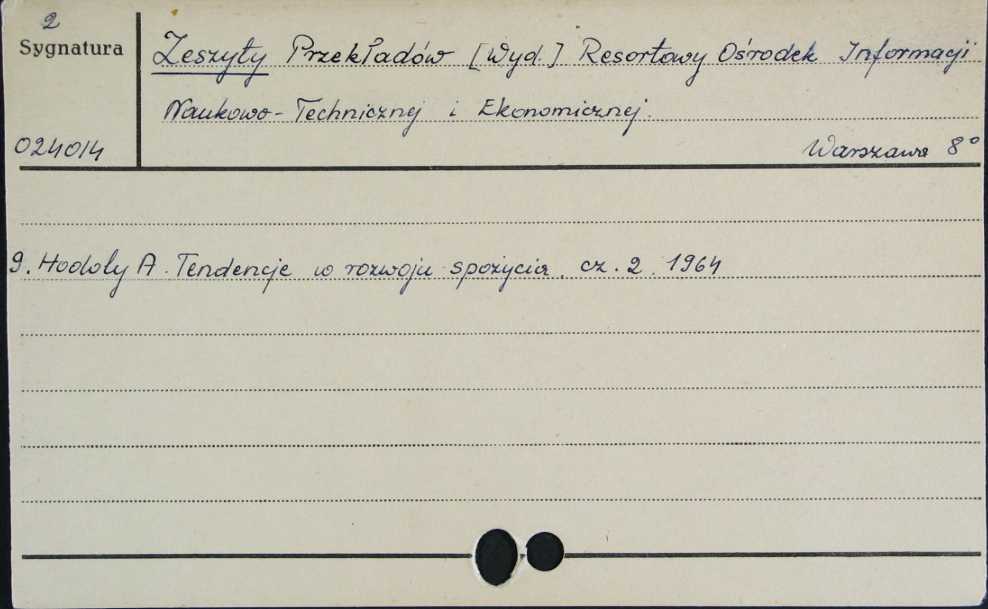 2
Sygnatura
Zeszyty Przekładów [Wyd.] Resortowy Ośrodek Informacji
Naukowo-Technicznej i Ekonomicznej.
024014
Warszawa 8°
9. Hodoly A. Tendencje w rozwoju spożycia. cz. 2. 1964